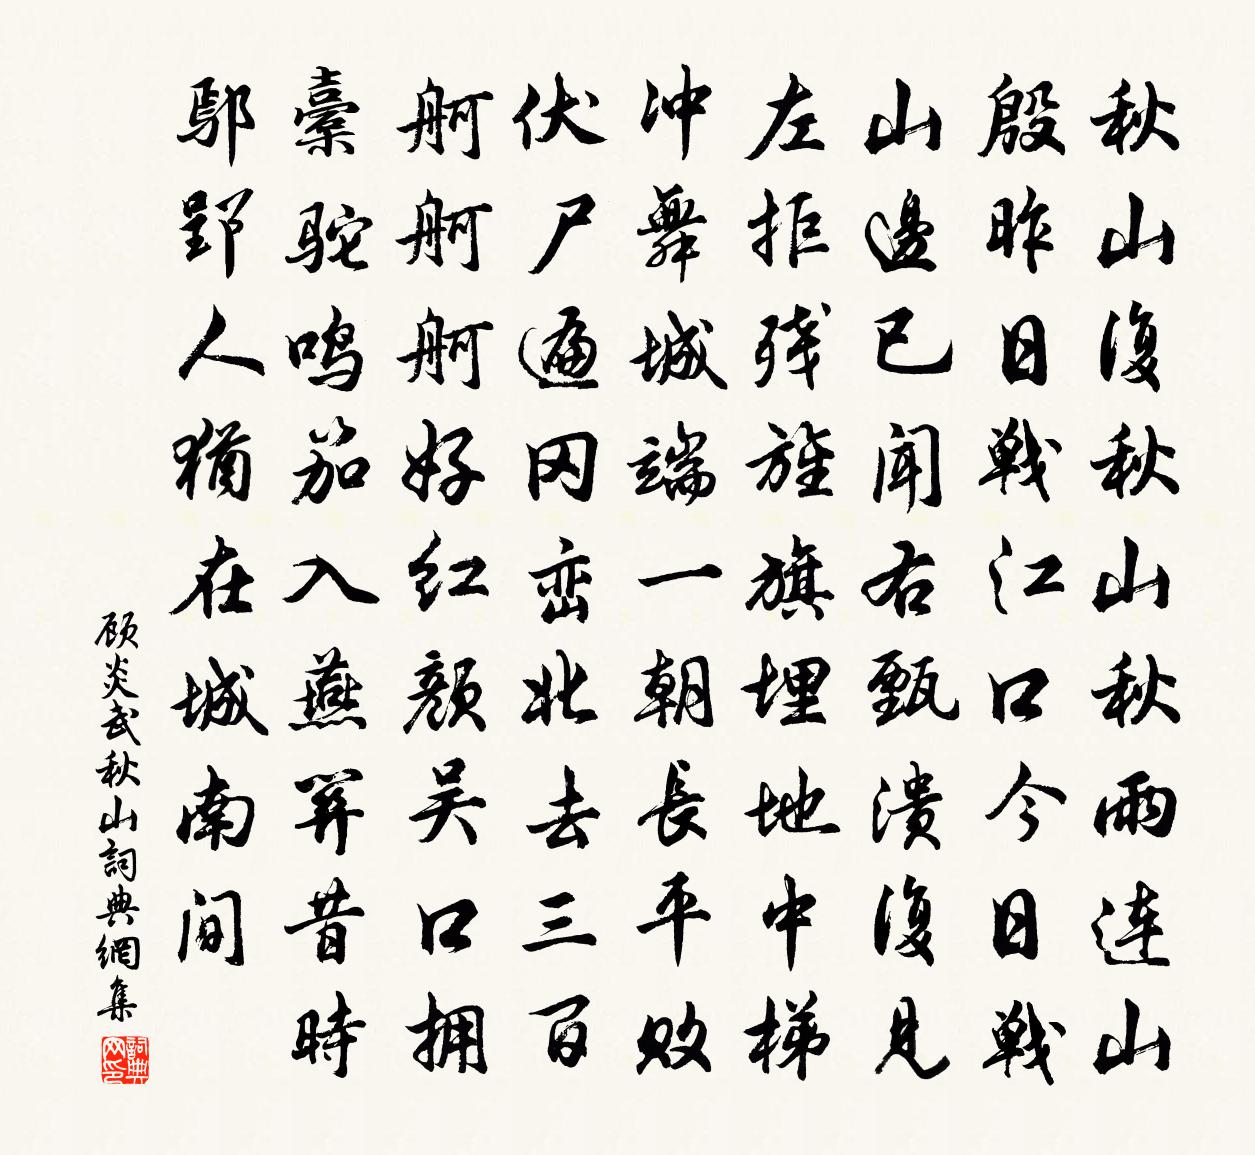 秋山復秋山秋雨连山
殷昨日戦江口今日戦
山邊已闻右甄溃復見
左拒残旌旗埋地中梯
冲舞城端一朝長平败
伏尸遍冈峦北去三百
舸舸舸好红颜吴口拥
橐驼鸣笳入燕関昔時
鄢郢人猶在城南间
顾炎武秋山詞典網集
詞典网印